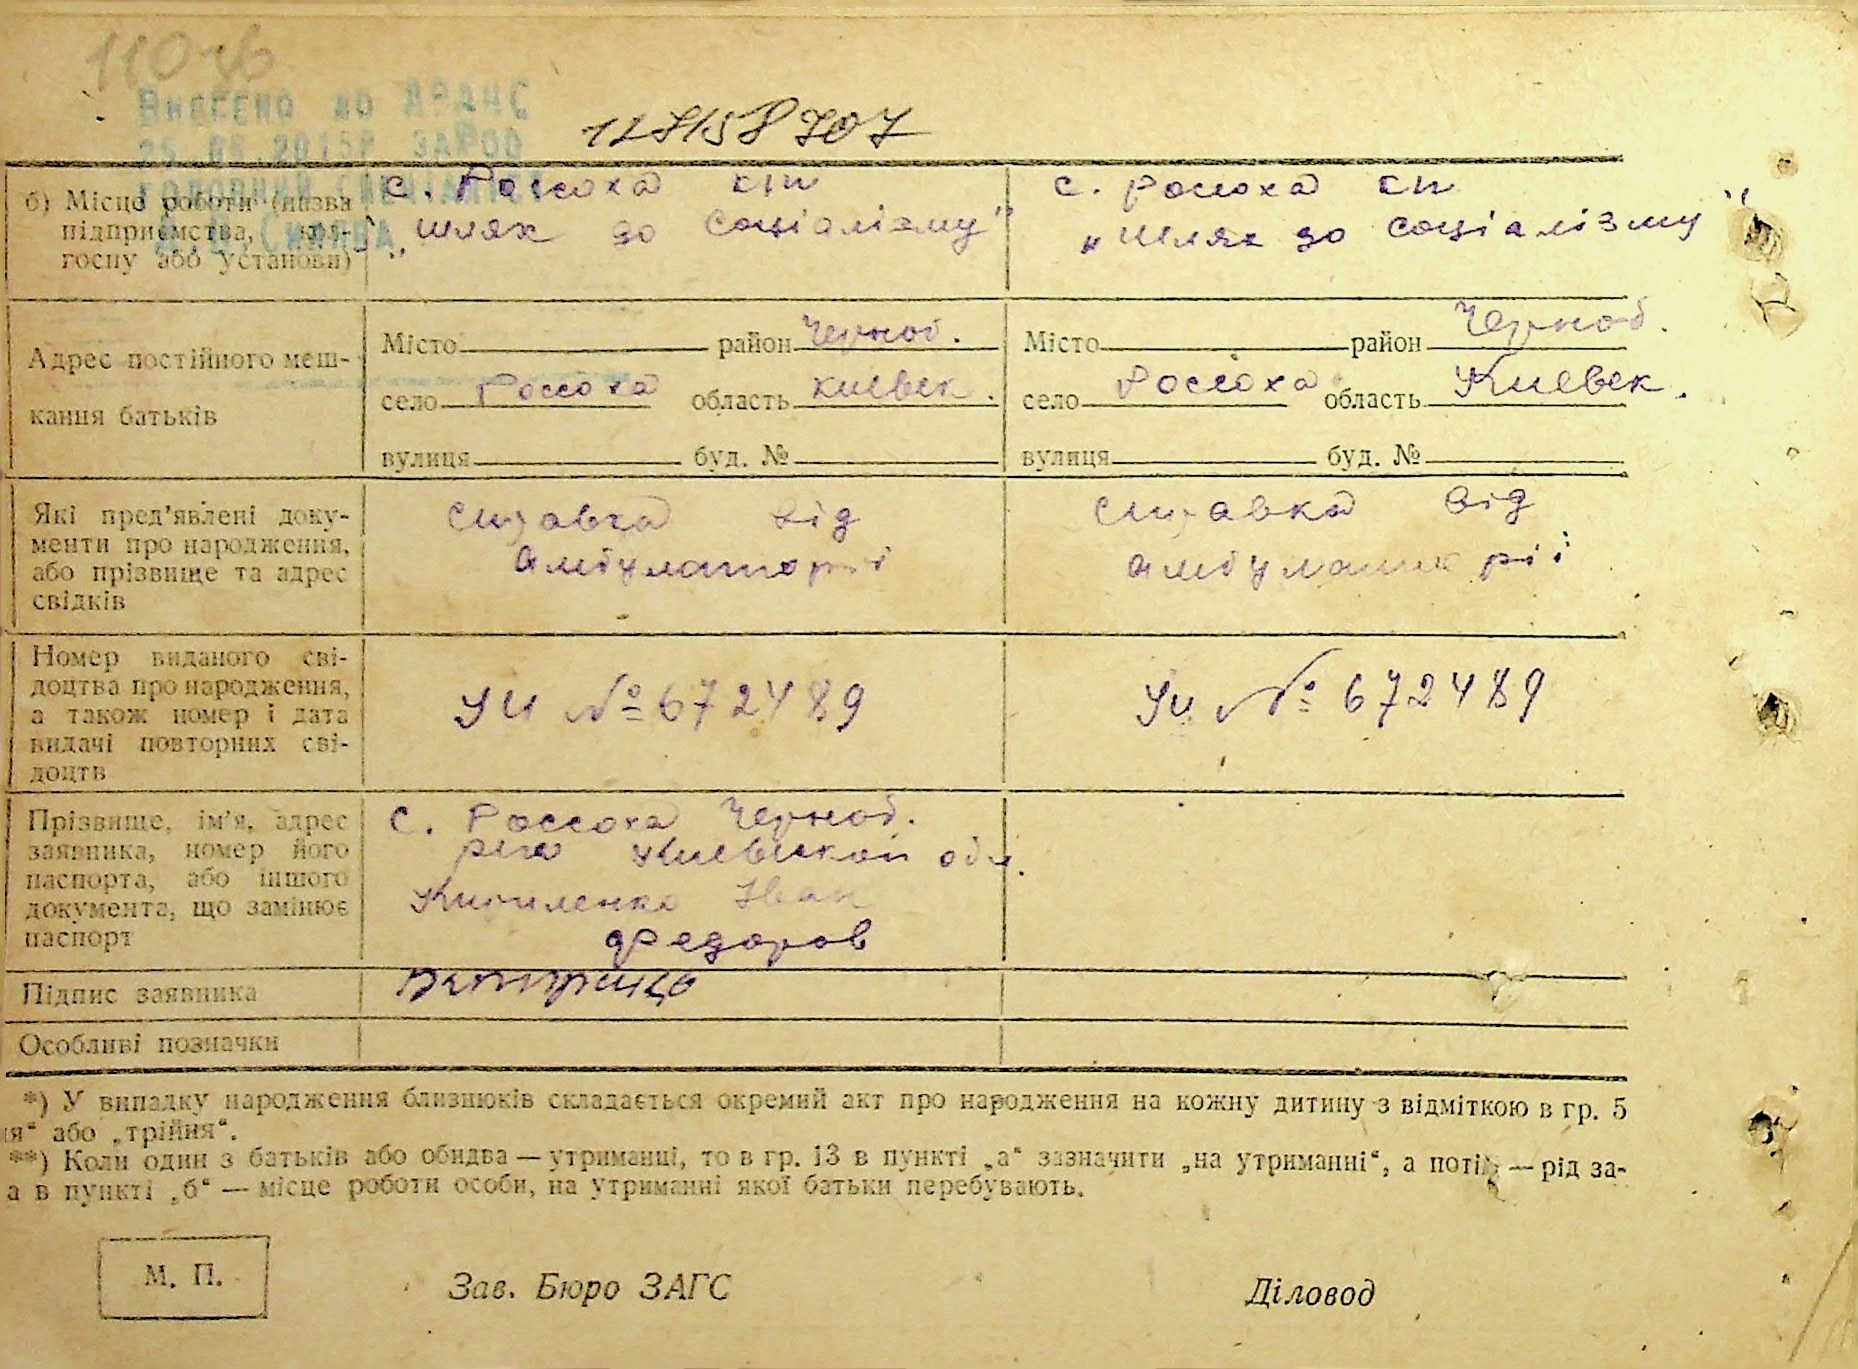 110
Внесено до ДРАЦС
128158707
б) Місце роботи (назва
підприємства,
госпу або установи)
с. Россоха кп
„шлях до Соціалізму"
с. Россоха кп
„Шлях до соціалізму"
Адрес постійного меш-
кання батьків
Місто район Черноб.
село Россоха область Киевск.
вулиця буд. №
Місто район Черноб.
село Россоха область Киевск.
вулиця буд. №
Які пред'явлені доку-
менти про народження,
або прізвище та адрес
свідків
Справка від
амбулаторії
Справка від
амбулаторії
Номер виданого сві-
доцтва про народження,
а також номер і дата
видачі повторних сві-
доцтв
УИ № 672489
Уи № 672489
Прізвище, ім'я, адрес
заявника, номер його
паспорта, або іншого
документа, що замінює
паспорт
с. Россоха Черноб.
Киевской обл.
Иван
Федоров
Підпис заявника
Особливі позначки
*) У випадку народження близнюків складається окремий акт про народження на кожну дитину з відміткою в гр. 5
я“ або „трійня“.
**) Коли один з батьків або обидва — утриманці, то в гр. 13 в пункті „а“ зазначити „на утриманні“, а потім — рід за-
а в пункті „б“ — місце роботи особи, на утриманні якої батьки перебувають.
М. П.
Зав. Бюро ЗАГС
Діловод